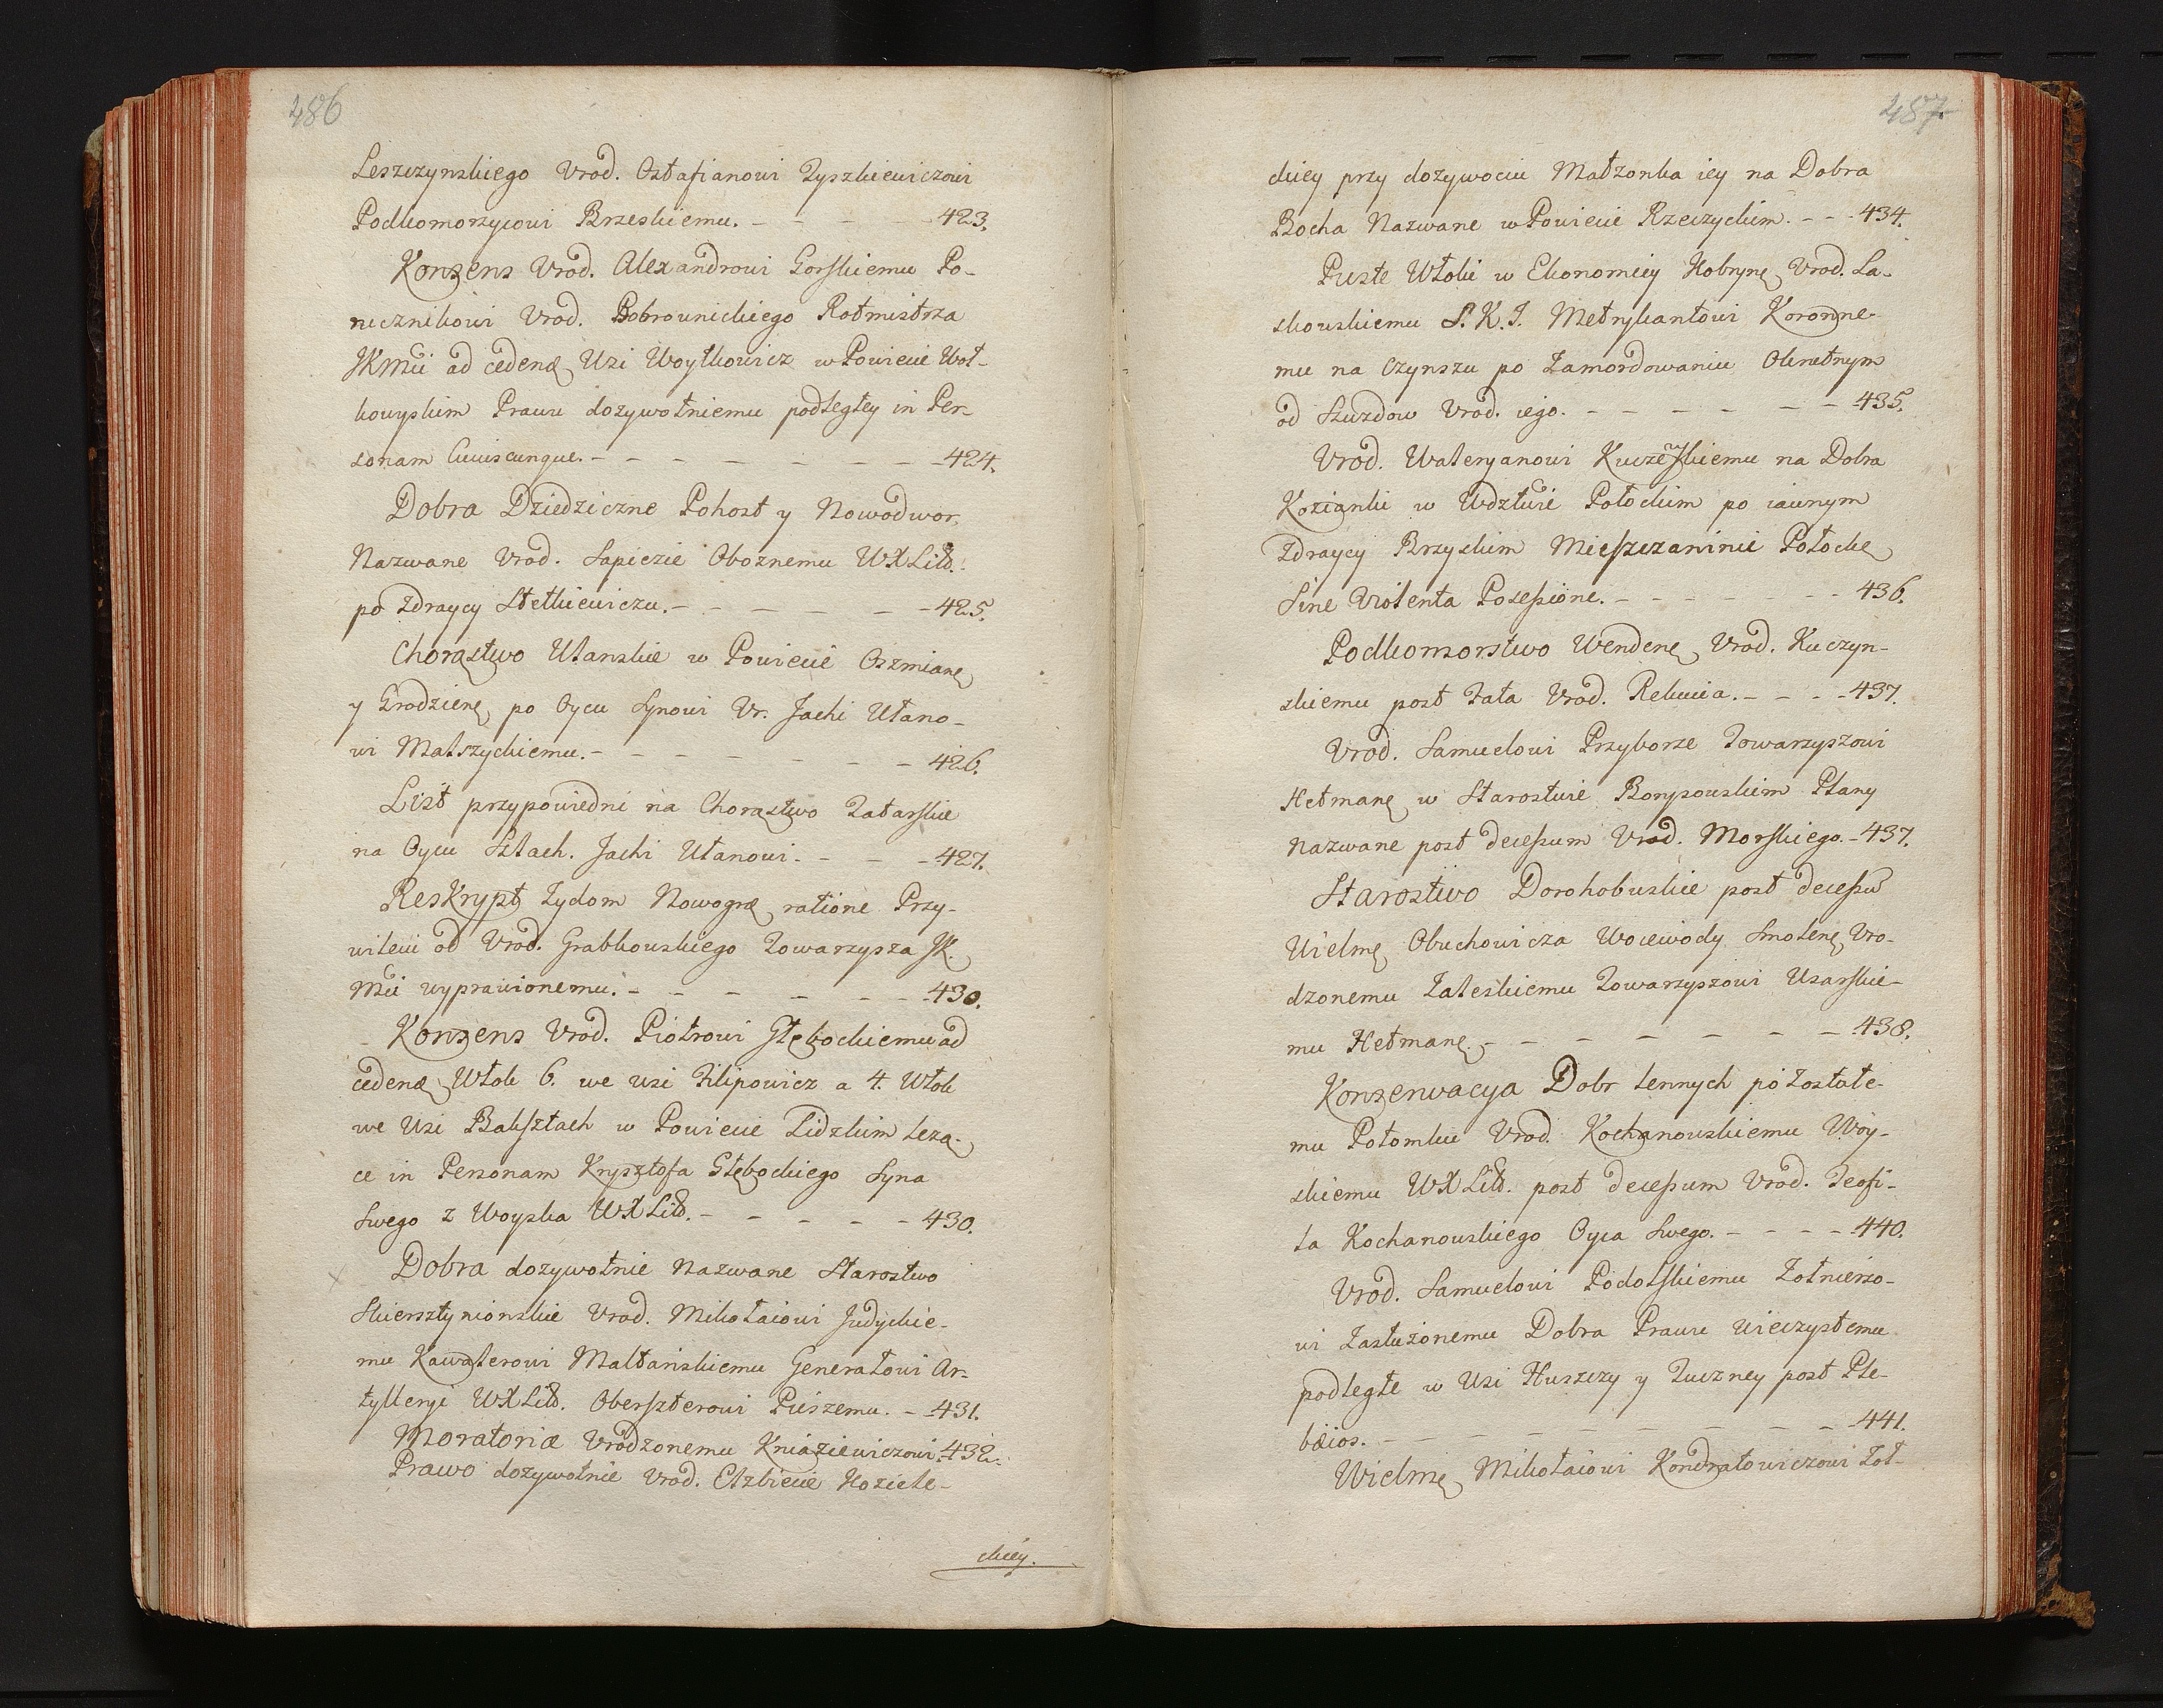 486
Leszczynskiego Vrod. Ostafianowi Tyszkiewiczowi
Podkomorzycowi Brzeskiemu. - - - 423.
Konsens Vrod. Alexandrowi Gorskiemu Po-
rucznikowi Vrod. Bobrownickiego Rotmistrza
JKMci ad cedenđ Wsi Woytkowicz w Powiecie Woł-
kowyskim Prawu dozywotniemu podległey in Per-
sonam Cuiuscunque. - - - - - - - 424.
Dobra Dziedziczne Pohost y Nowodwor
Nazwane Vrod. Sapiezie Oboznemu WXLitt.
po Zdraycy Stetkiewiczu. - - - - - - 425.
Chorąstwo Ułanskie w Powiecie Oszmianę
y Grodzienę po Oycu Synowi Vr. Jachi Ułano-
wi Malszyckiemu. - - - - - - - 426.
List przypowiedni na Chorąstwo Tatarskie
na Oycu Sztach. Jachi Ułanowi. - - - 427.
Reskrypt Zydom Nowogrđ ratione Przy-
wileiu od Vrod. Grabkowskiego Towarzysza JK.
Mci wyprawionemu. - - - - - - 430.
Konsens Vrod. Piotrowi Głębockiemu ad
cedenđ Włok 6. we wsi Filipowicz a 4. Włok
we Wsi Baksztach w Powiecie Lidzkim leżą-
ce in Personam Krysztofa Głębockiego Syna
Swego z Woyska WXLitt. - - - - - 430.
Dobra dozywotnie Nazwane Starostwo
Skiersztymonskie Vrod. Mikołaiowi Judyckie-
mu Kawalerowi Maltańskiemu Generałowi Ar-
tylleryi WXLitt. Oberszterowi Pieszemu. - 431.
Moratoriæ Vrodzonemu Kniaziewiczowi. 432.
Prawo dozywotnie Vrod. Elzbiecie Koziele-
ckiey.
487
ckiey przy dozywociu Małzonka iey na Dobra
Bocha Nazwane w Powiecie Rzeczyckim. - - - 434.
Puste Włoki w Ekonomiey Kobrynę Vrod. La-
skowskiemu S.K.J. Metrykantowi Koronne-
mu na Czynszu po Zamordowaniu Okrutnym
od Szwedow Vrod. iego. - - - - - - 435.
Vrod. Waleryanowi Kuczewskiemu na Dobra
Kozianki w Wdztwie Połockim po iawnym
Zdraycy Brzyskim Mieszczaninie Połockę
Sine Violenta Posessione. - - - - - - - 436.
Podkomorstwo Wendenę Vrod. Kuczyn-
skiemu post Fata Vrod. Rekucia. - - - - 437.
Vrod. Samuelowi Przyborze Towarzyszowi
Hetmanę w Starostwie Borysowskim Płany
nazwane post decessum Vrod. Morskiego. - 437.
Starostwo Dorohobuskie post decessū
Wielmę Obuchowicza Woiewody Smolenę Vro-
dzonemu Zaleskiemu Towarzyszowi Usarskie-
mu Hetmanę. - - - - - - - 438.
Konserwacya Dobr lennych pozostałe-
mu Potomku Vrod. Kochanowskiemu Woy-
skiemu WXLitt. post decessum Vrod. Teofi-
la Kochanowskiego Oyca Swego. - - - - 440.
Vrod. Samuelowi Podolskiemu Zołnierzo-
wi Zasłużonemu Dobra Prawu wieczystemu
podległe w Wsi Huszczy y Tuczney post Ple-
bæios. - - - - - - - - 441.
Wielmę Mikołaiowi Kondratowiczowi Zoł-